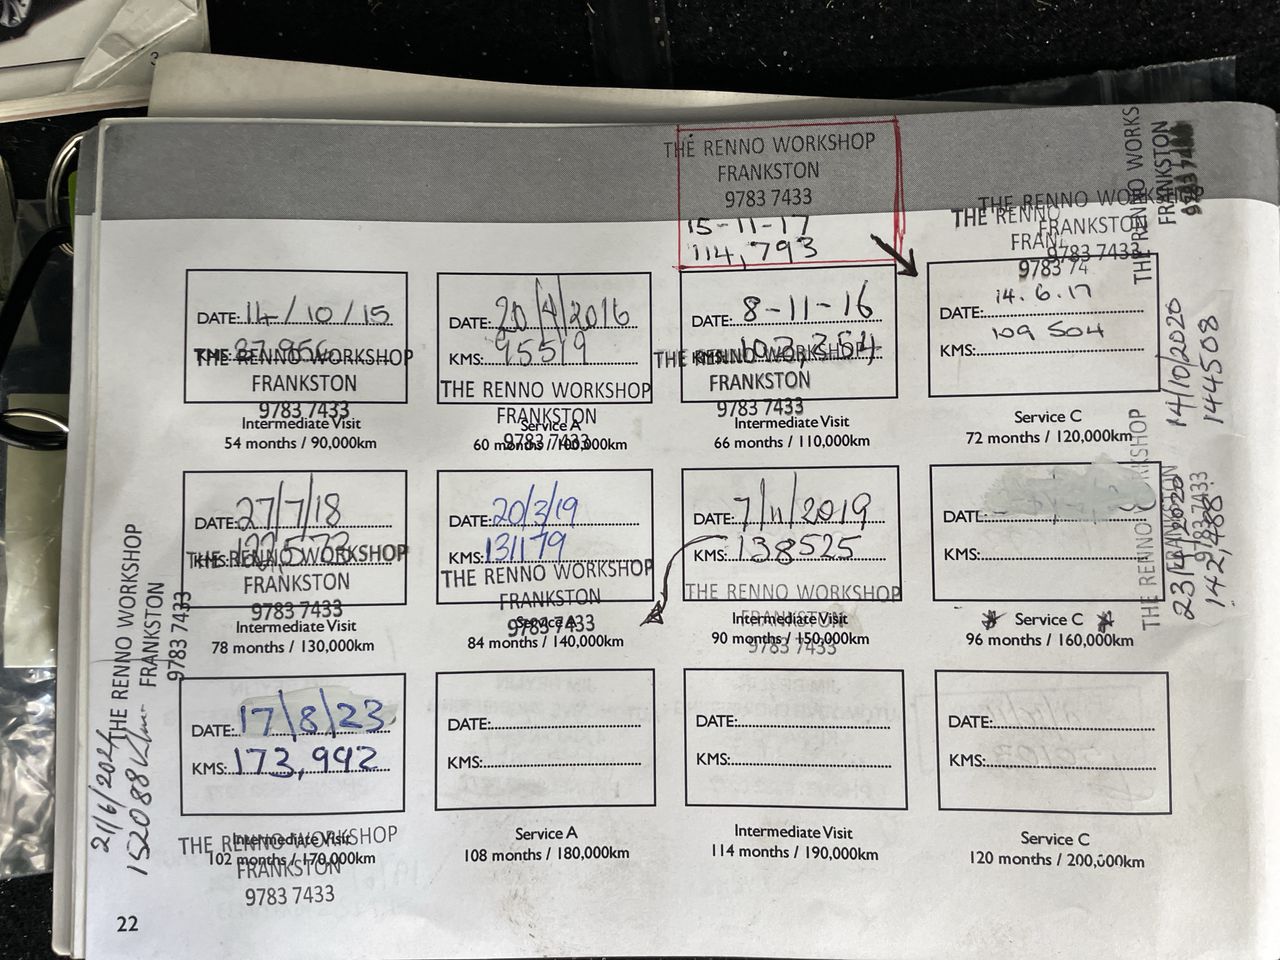 3
THE RENNO WORKSHOP
FRANKSTON
9783 7433
15-11-17
114,793
DATE: 14/10/15
KMS:
THE RENNO WORKSHOP
FRANKSTON
9783 7433
Intermediate Visit
54 months / 90,000km
DATE: 20/4/2016
KMS: 95519
THE RENNO WORKSHOP
FRANKSTON
9783 7433
Service A
60 months / 100,000km
DATE: 8-11-16
KMS:
THE RENNO WORKSHOP
FRANKSTON
9783 7433
Intermediate Visit
66 months / 110,000km
THE RENNO WORKSHOP
FRANKSTON
9783 7433
THE RENNO
FRAN
9783 74
DATE: 14.6.17
KMS: 109 504
Service C
72 months / 120,000km
THE RENNO WORKS
FRANKSTON
9783
14/10/2020
144508
DATE: 27/7/18
KMS:
THE RENNO WORKSHOP
FRANKSTON
9783 7433
Intermediate Visit
78 months / 130,000km
DATE: 20/3/19
KMS: 131179
THE RENNO WORKSHOP
FRANKSTON
9783 7433
Service A
84 months / 140,000km
DATE: 7/11/2019
KMS: 138525
THE RENNO WORKSHOP
FRANKSTON
9783 7433
Intermediate Visit
90 months / 150,000km
DATE:
KMS:
Service C
96 months / 160,000km
THE RENNO WORKSHOP
FRANKSTON
9783 7433
142,488
THE RENNO WORKSHOP
FRANKSTON
9783 7433
152088
DATE: 17/8/23
KMS: 173,992
Intermediate Visit
102 months / 170,000km
THE RENNO WORKSHOP
FRANKSTON
9783 7433
DATE:
KMS:
Service A
108 months / 180,000km
DATE:
KMS:
Intermediate Visit
114 months / 190,000km
DATE:
KMS:
Service C
120 months / 200,000km
22